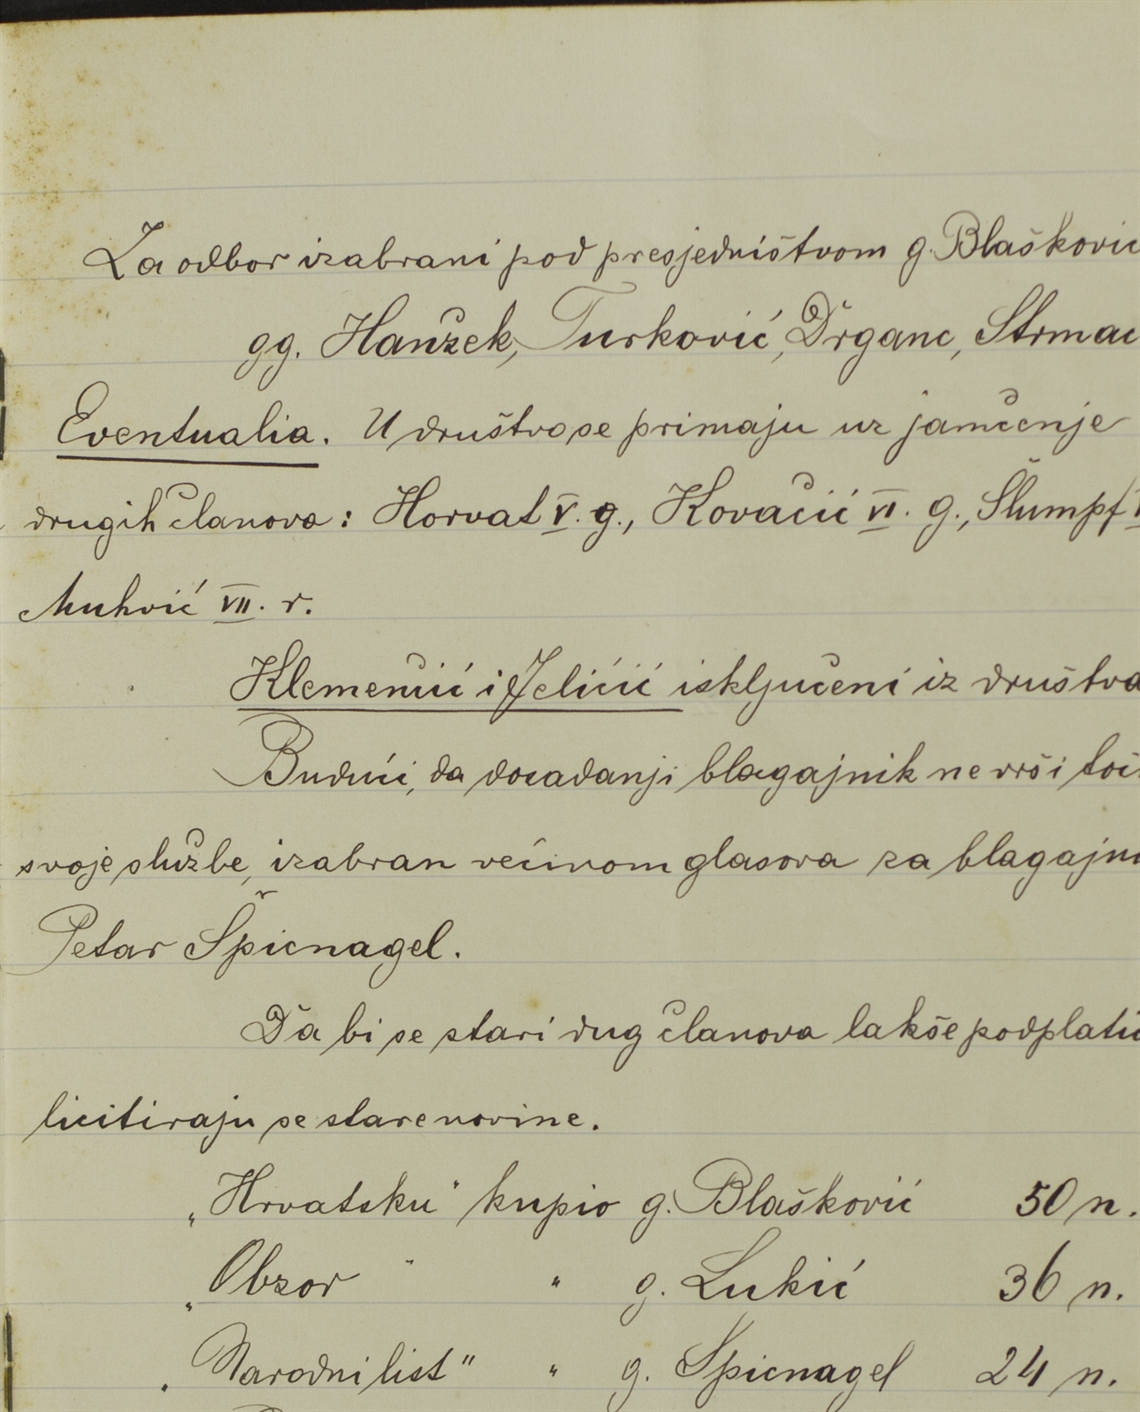 Za odbor izabrani pod presjedništvom g. Blašković
gg. Hanžek, Turković, Drganc, Strmac
Eventualia. U društvo se primaju uz jamčenje
drugih članova: Horvat V. g., Kovačić VI. g., Štumpf
Muhvić VII. r.
Klemenčić i Jeličić isključeni iz društva
Budući, da dosadanji blagajnik ne vrši toč
svoje službe, izabran većinom glasova za blagajni
Petar Špicnagel.
Da bi se stari dug članova lakše podplatio
licitiraju se stare novine.
„Hrvatsku" kupio g. Blašković 50 n.
„Obzor " " g. Lukić 36 n.
„Narodni list" " g. Špicnagel 24 n.